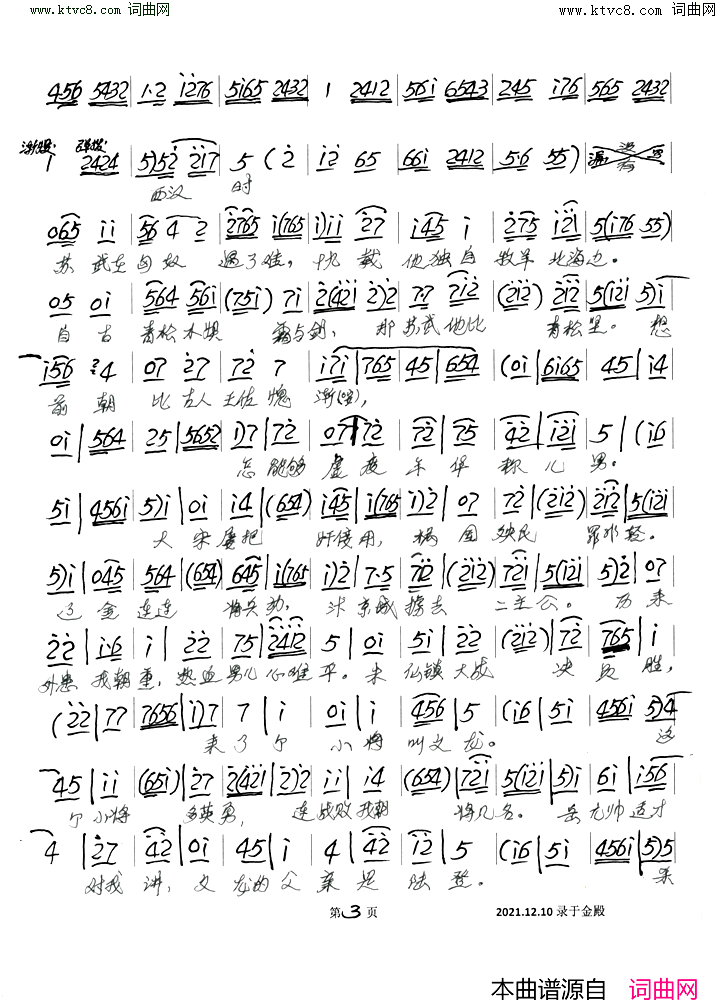 www.ktvc8.com 词曲网 www.ktvc8.com 词曲网
456 5432 | 1·2 i276 | 5i65 2432 | 1 2412 | 56i 6543 | 245 i76 | 565 2432 |
渐慢
1 2424 | 5)52 217 | 5 (2 | i2 65 | 66i 2412 | 5·6 55) |
西汉 时
065 ii | 56 4 2 | 2765 i(765 | i)ii 27 | i45 i | 275 i2i | 5(i76 55) |
苏武在匈奴 遇了难， 他独自牧羊北海边。
05 0i | 564 56i | (75i) 7i | 2(42i 2)2 | 77 7i2 | (2i2) 2i2 | 5(i2i 5)i |
自古青松不惧 霜与剑， 那苏武他比 青松坚。 想
i56 4 | 07 27 | 72 7 | i7i | 765 | 45 | 654 | (0i | 6i65 | 45 | i4 |
前朝 比古人 愧
0i | 564 | 25 | 5652 | i)7 | 72 | 07 | 72 | 72 | 75 | 42 | i2i | 5 | (i6 |
怎能够虚度年华称儿男。
5i | 456i | 5)i | 0i | i4 | (654) | i45 | i(765 | i)2 | 07 | 72 | (2i2) | 2i2 | 5(i2i |
大宋屡把 奸佞用， 祸国殃民 罪
5)i | 045 | 564 | (654) | 645 | i(765 | i)2 | 7·5 | 72 | (2i2) | 72i | 5(i2i | 5)2 | 07 |
辽金连连 将兵动， 汴京城掳去 二主公。 历来
22 | i·6 | i | 22 | 75 | 2412 | 5 | 0i | 5i | 22 | (2i2) | 72 | 765 | i |
外患我朝重，热血男儿心难平。朱仙镇大战 决 胜，
(22 | 77 | 7656 | i)7 | 7 | i | 0i | i | 456 | 5 | (i6 | 5i | 456i | 5)4 |
来了个 小将叫文龙。 这
45 | ii | (65i) | 27 | 2(42i | 2)2 | ii | i4 | (654) | 72i | 5(i2i | 5)i | 6i | i56 |
个小将 多英勇， 连战败我朝 将几名。 岳元帅适才
4 | 27 | 42 | 0i | 45 | i | 4 | 42 | i2 | 5 | (i6 | 5i | 456i | 5)5 |
对我讲，文龙的父亲是 陆登。
第 3 页 2021.12.10 录于金殿
本曲谱源自 词曲网